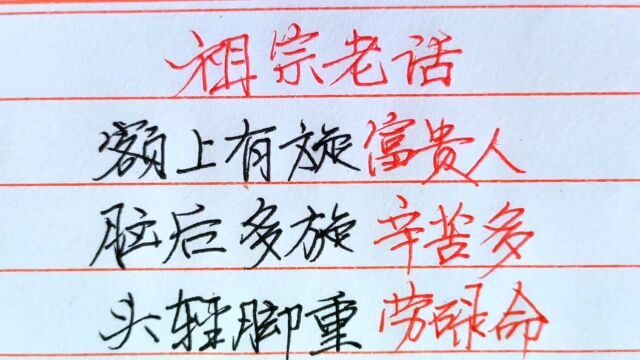 祖宗老话
额上有旋富贵人
脑后多旋辛苦多
头轻脚重劳碌命